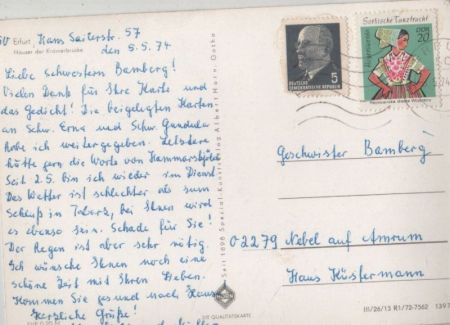 50 Erfurt Hans Sailerstr. 57
Häuser der Krämerbrücke
den 5.5.74
Liebe Schwestern Bamberg!
Vielen Dank für Ihre Karte und
das Gedicht! Die beigelegten Karten
an Schw. Erna und Schw. Gundula
habe ich weitergegeben. Letztere
hätte gern die Worte von Hammarskjöld
Seit 2.5. bin ich wieder im Dienst
Das Wetter ist schlechter als zum
Schluß in Tabarz, bei Ihnen wird
es ebenso sein. Schade für Sie!
Der Regen ist aber sehr nötig.
Ich wünsche Ihnen noch eine
schöne Zeit mit Ihren Lieben.
Kommen Sie gut nach Hause
Herzliche Grüße!
Seit 1898 Spezial-Kunstverlag Albert Horn, Gotha
DEUTSCHE
DEMOKRATISCHE REPUBLIK
5
Sorbische Tanztracht
DDR
20
Geschwister Bamberg
02279 Nebel auf Amrum
Haus Hüstermann
DIE QUALITÄTSKARTE
III/26/13 R1/72-7562 1397